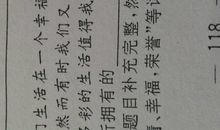 们生活在一个幸福
然而有时我们又
多彩的生活值得我
所拥有的
题目补充完整,然
、幸福,荣誉”等
118